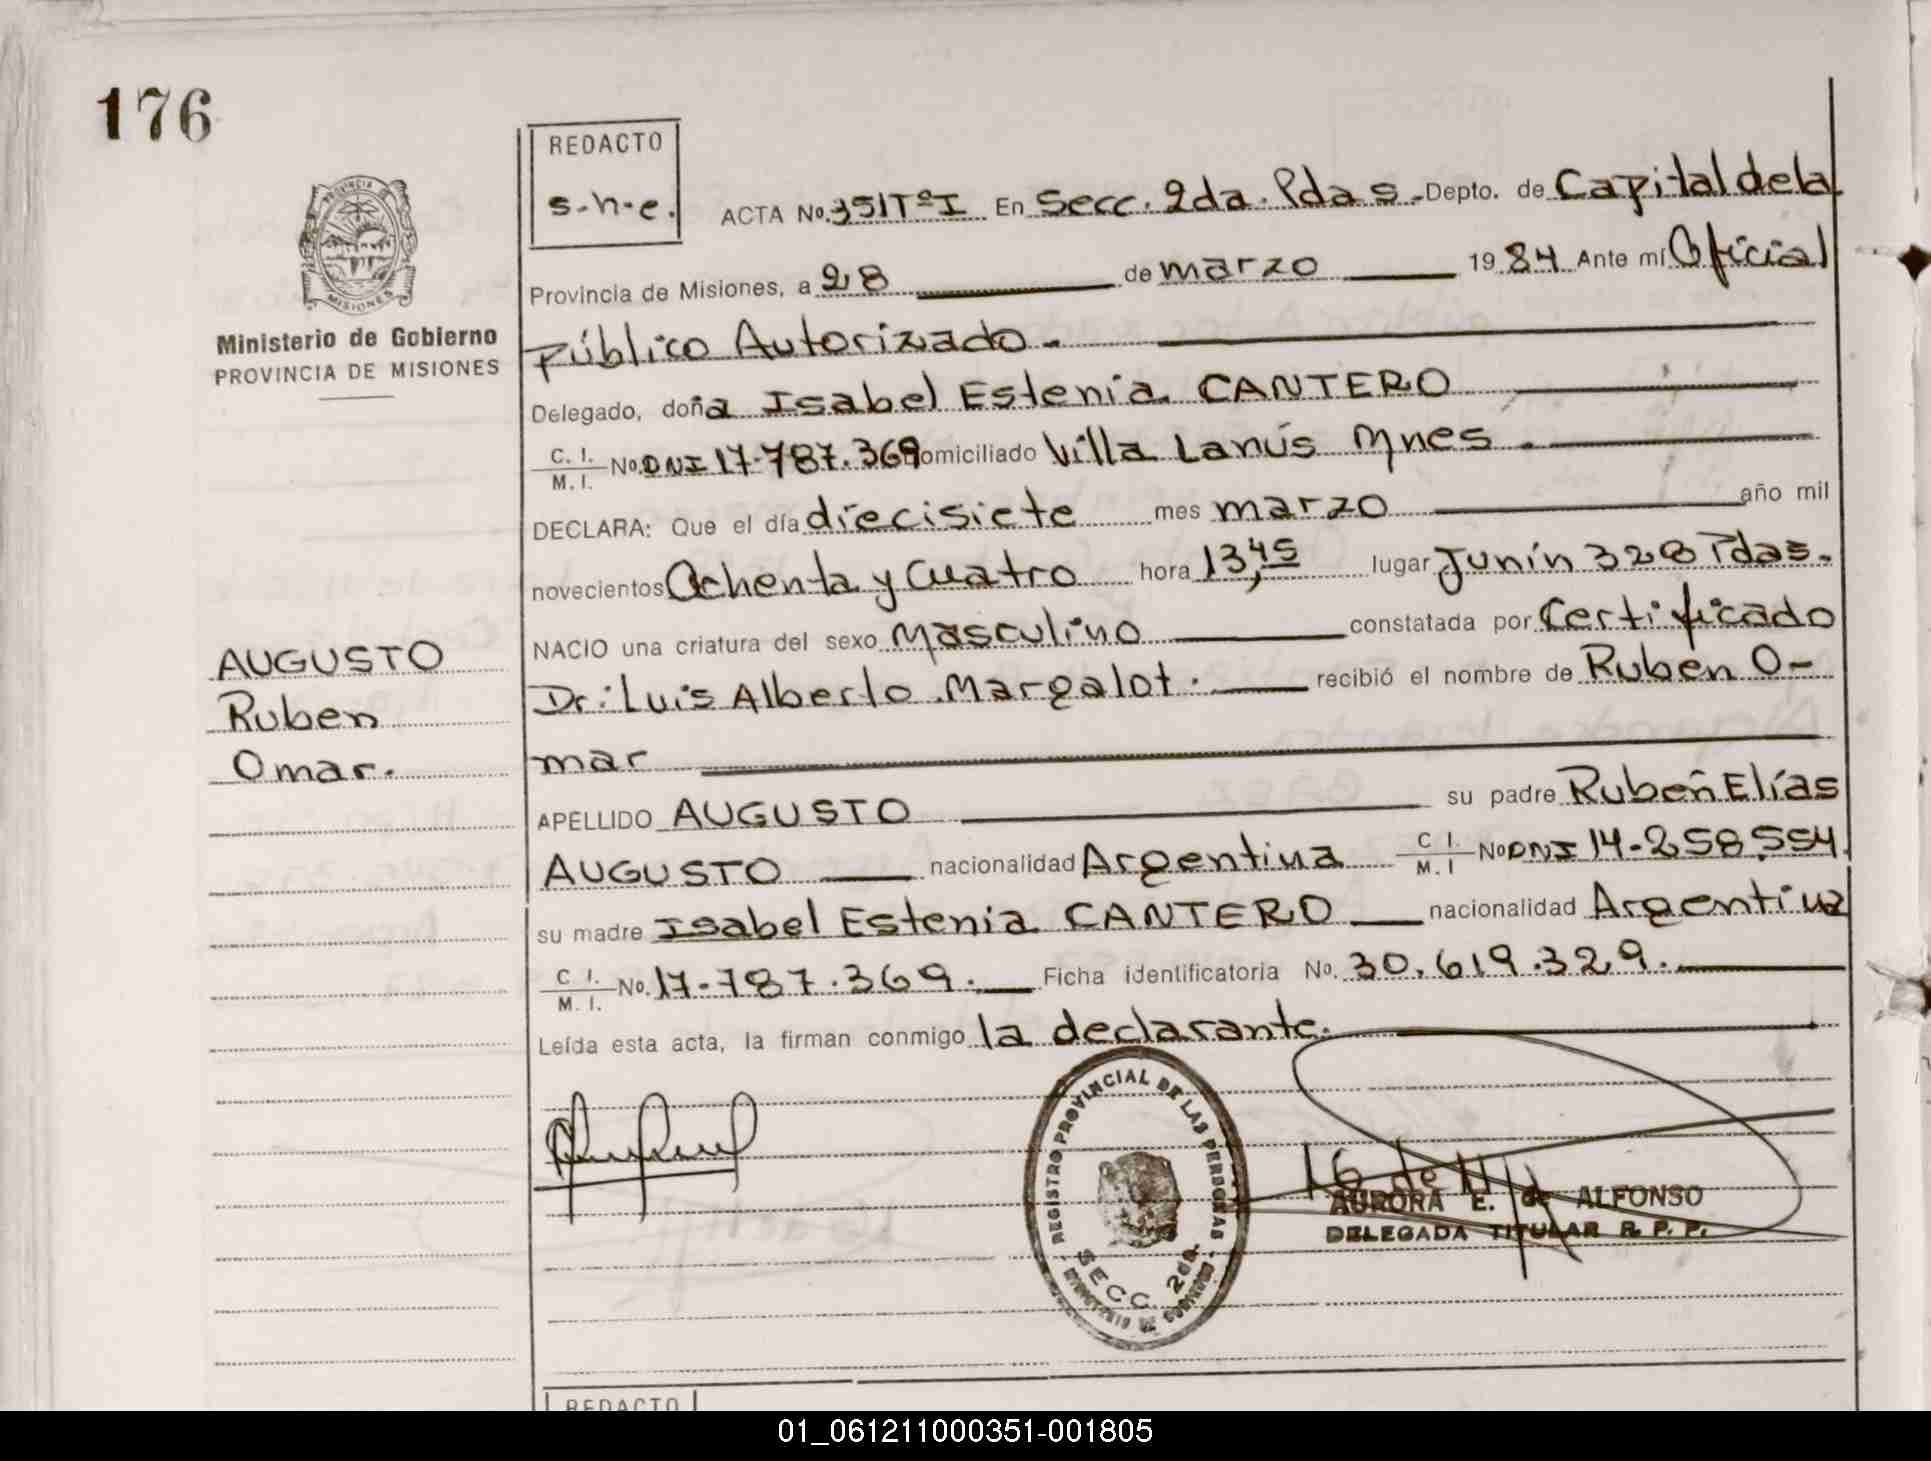 176
REDACTO
s.h.e.
PROVINCIA DE
MISIONES
Ministerio de Gobierno
PROVINCIA DE MISIONES
ACTA No. 351TºI En Secc. 2da. Pdas. Depto. de Capital de la
Provincia de Misiones, a 28 de marzo 1984 Ante mí Oficial
Público Autorizado.
Delegado, doña Isabel Estenia CANTERO
C. I. / M. I. No. DNI 17-787.369 domiciliado Villa Lanús Mnes.
DECLARA: Que el día diecisiete mes marzo año mil
novecientos Ochenta y Cuatro hora 13,45 lugar Junín 328 Pdas.
NACIO una criatura del sexo Masculino constatada por Certificado
Dr: Luis Alberto Margalot. recibió el nombre de Ruben O-
mar
APELLIDO AUGUSTO su padre Ruben Elías
AUGUSTO nacionalidad Argentina C I. / M. I No DNI 14-258.554
su madre Isabel Estenia CANTERO nacionalidad Argentina
C I. / M. I. No. 17-787.369. Ficha identificatoria No. 30.619.329.
Leída esta acta, la firman conmigo la declarante.
AUGUSTO
Ruben
Omar.
REGISTRO PROVINCIAL DE LAS PERSONAS
SECC. 2da.
MINISTERIO DE GOBIERNO
AURORA E. de ALFONSO
DELEGADA TITULAR R. P. P.
REDACTO
01_061211000351-001805